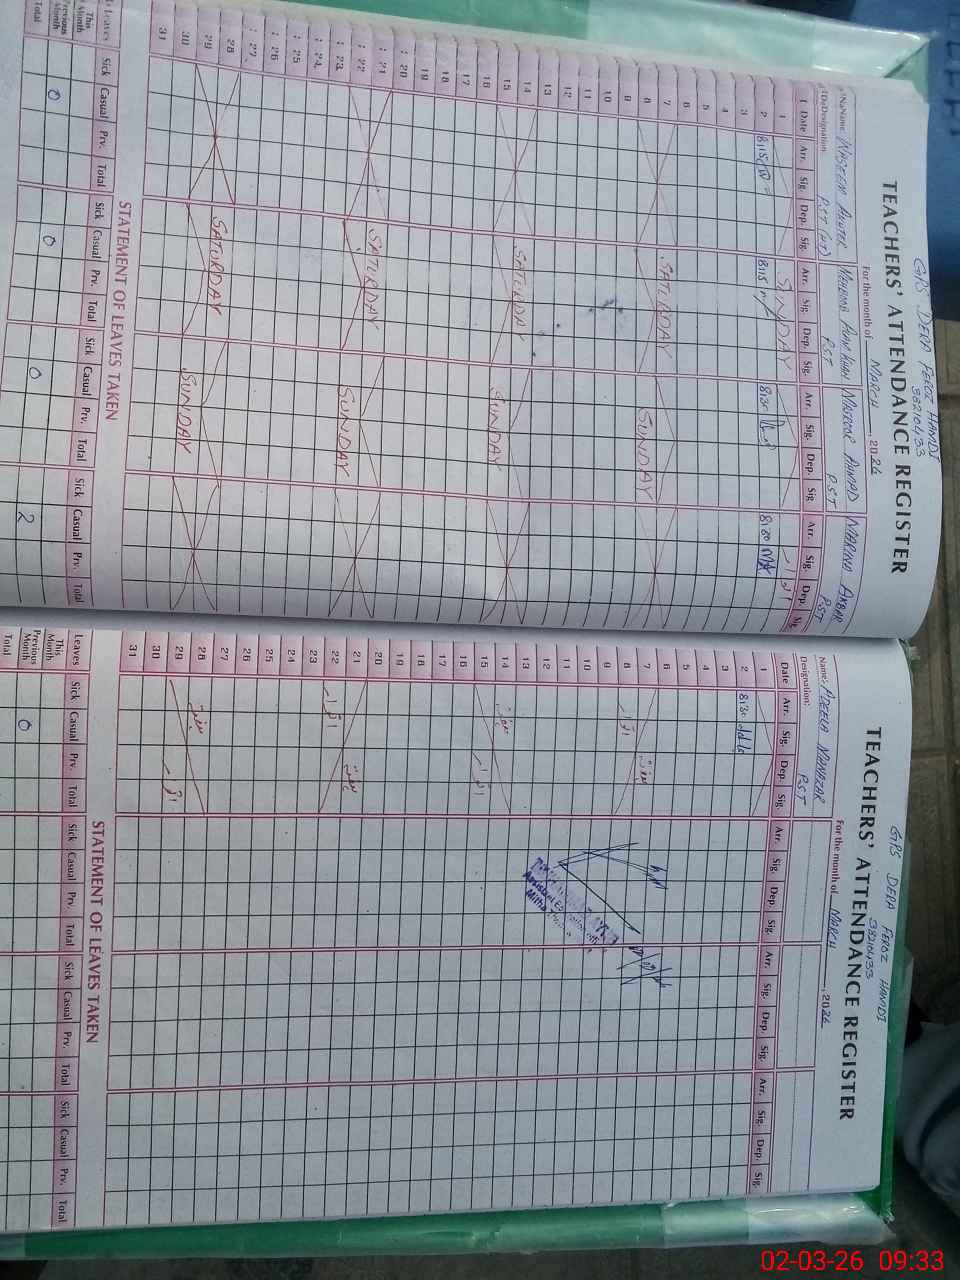 GPS DERA FEROZ HAMDI
38210433
TEACHERS' ATTENDANCE REGISTER
For the month of MARCH, 2026
Name: WASEEM AKHTER
Designation: PST
MEHBOOB KHAN
PST
MASROOR AHMAD
P.S.T
NAARINA AKBAR
PST
Date Arr. Sig. Dep. Sig. Arr. Sig. Dep. Sig. Arr. Sig. Dep. Sig Arr. Sig. Dep. Sig.
1 SUNDAY اتوار
2 8:15 8:15 8:30 8:20
3
4
5
6
7 SATURDAY
8 SUNDAY
9
10
11
12
13
14 SATURDAY
15 SUNDAY
16
17
18
19
20
21 SATURDAY
22 SUNDAY
23
24
25
26
27
28 SATURDAY
29 SUNDAY
30
31
STATEMENT OF LEAVES TAKEN
Leaves Sick Casual Prv. Total Sick Casual Prv. Total Sick Casual Prv. Total Sick Casual Prv. Total
This Month
Previous Month 0 0 0 2
Total
GPS DERA FEROZ HAMDI
38210433
TEACHERS' ATTENDANCE REGISTER
For the month of MARCH, 2026
Name: ADEELA
Designation: PST
Date Arr. Sig. Dep. Sig. Arr. Sig. Dep. Sig. Arr. Sig. Dep. Sig. Arr. Sig. Dep. Sig.
1
2 8:30
3
4
5
6
7 ہفتہ
8 اتوار
9
10
11
12
13
14 ہفتہ
15 اتوار
16
17
18
19
20
21 ہفتہ
22 اتوار
23
24
25
26
27
28 ہفتہ
29 اتوار
30
31
Assistant Education
Mitha
STATEMENT OF LEAVES TAKEN
Leaves Sick Casual Prv. Total Sick Casual Prv. Total Sick Casual Prv. Total Sick Casual Prv. Total
This Month
Previous Month 0
Total
02-03-26 09:33